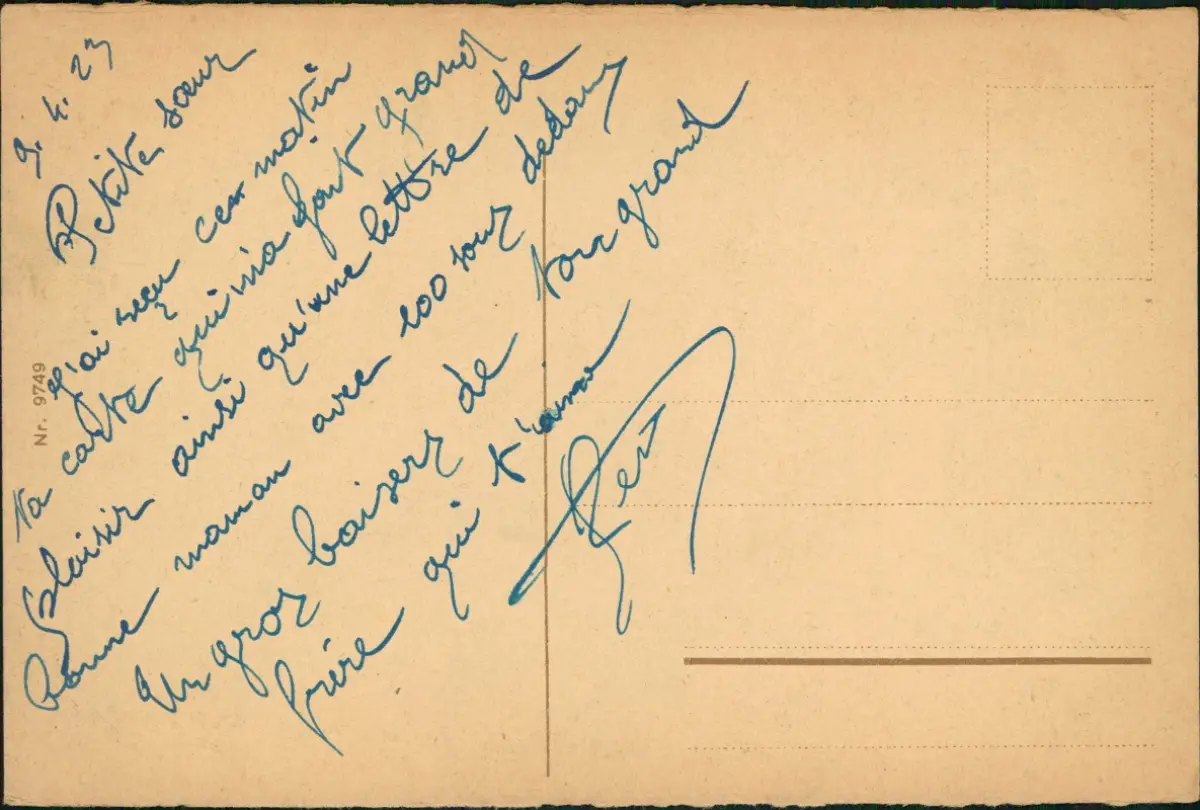 9. 4. 23
Petite sœur
J'ai reçu ce matin
ta carte qui m'a fait grand
plaisir ainsi qu'une lettre de
bonne maman avec 100 sous dedans
Un gros baiser de ton grand
frère qui t'aime
Nr. 9749